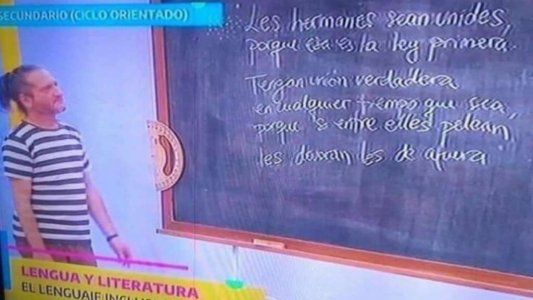 SECUNDARIO (CICLO ORIENTADO)
Les hermanes sean unides,
porque esa es la ley primera.
Tengan unión verdadera
en cualquier tiempo que sea,
porque si entre elles pelean
les devoran les de afuera
LENGUA Y LITERATURA
EL LENGUAJE